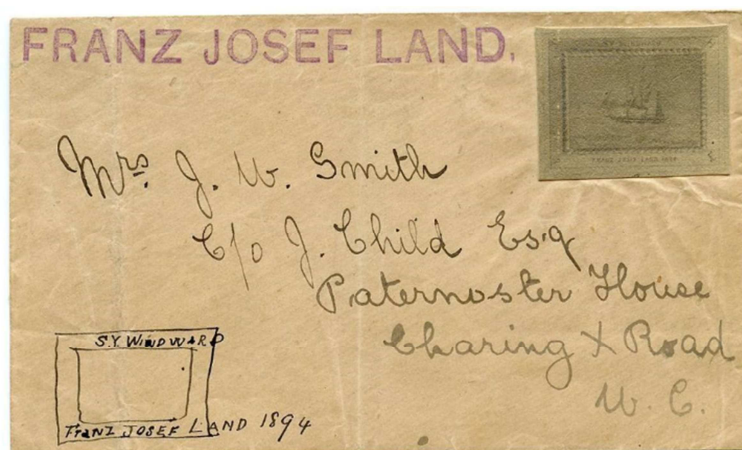 FRANZ JOSEF LAND.
S.Y. WINDWARD
FRANZ JOSEF LAND 1894
Mrs. J. W. Smith
C/o J. Child Esq
Paternoster House
Charing X Road
W. C.
S.Y. WINDWARD
FRANZ JOSEF LAND 1894